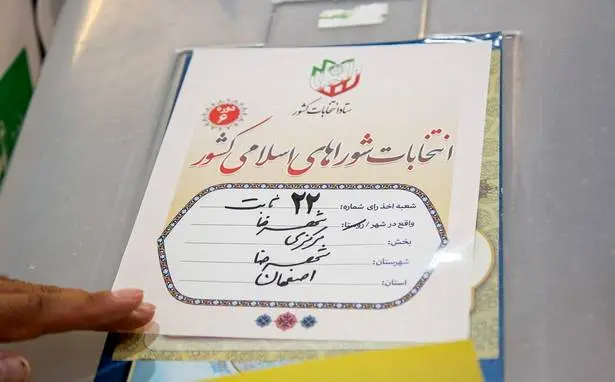 ستاد انتخابات کشور
دوره ۶
انتخابات شوراهای اسلامی کشور
شعبه اخذ رای شماره: ۲۲ ثابت
واقع در شهر / روستا: شهرضا
بخش: مرکزی
شهرستان: شهرضا
استان: اصفهان